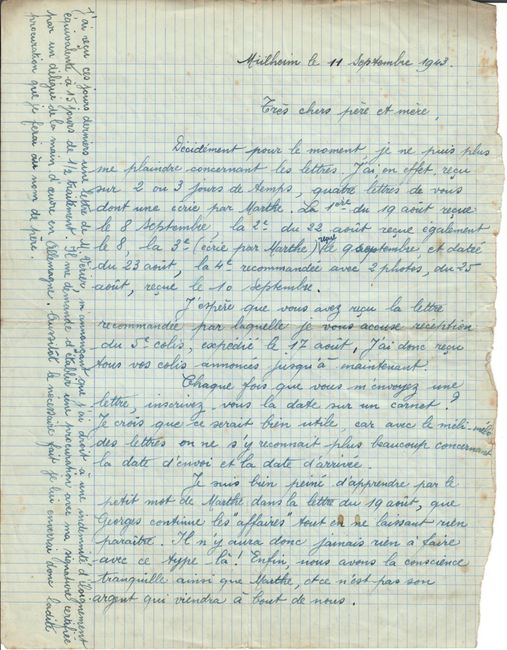 Mülheim le 11 Septembre 1943.
Très chers père et mère,
Decidément pour le moment je ne puis plus
me plaindre concernant les lettres. J'ai en effet, reçu
sur 2 ou 3 jours de temps, quatre lettres de vous
dont une écrie par Marthe. La 1ère du 19 août reçue
le 8 Septembre, la 2e du 22 août reçue également
le 8, la 3e (écrie par Marthe) reçue le 9 septembre et datée
du 23 août, la 4e recommandée avec 2 photos, du 25
août, reçue le 10 septembre.
J'espère que vous avez reçu la lettre
recommandée par laquelle je vous accuse réception
du 5e colis, expédié le 17 août, J'ai donc reçu
tous vos colis annoncés jusqu'à maintenant.
Chaque fois que vous m'envoyez une
lettre, inscrivez vous la date sur un carnet ?
Je crois que ce serait bien utile, car avec le méli-mélo
des lettres on ne s'y reconnait plus beaucoup concernant
la date d'envoi et la date d'arrivée.
Je suis bien peiné d'apprendre par le
petit mot de Marthe dans la lettre du 19 août, que
Georges continue les affaires" tout en ne laissant rien
paraître. Il n'y aura donc jamais rien à faire
avec ce type là ! Enfin, nous avons la conscience
tranquille ainsi que Marthe, et ce n'est pas son
argent qui viendra à bout de nous.
J'ai reçu ces jours derniers une lettre de M. m'annonçant que j'ai droit à une indemnité d'éloignement
équivalente à 15 jours de 1/2 traitement. Il me demande d'établir une procuration avec ma signature certifiée
par un délégué de la main d'œuvre en Allemagne. Aussitôt le nécessaire fait je lui enverrai donc ladite
procuration que je ferai au nom de père.